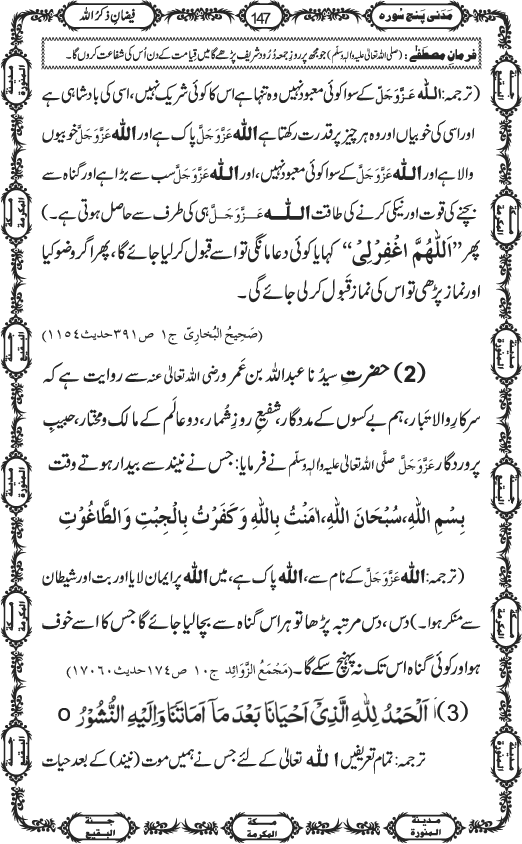 مَدَنی پنج سورہ 147 فیضانِ ذکرُ اللہ
فرمانِ مصطَفٰے : (صلی اللہ تعالیٰ علیہ والہٖ وسلّم) جو مجھ پر روزِ جمعہ دُرُود شریف پڑھے گا میں قیامت کے دن اُس کی شفاعت کروں گا۔
(ترجمہ: اللہ عَزَّوَجَلَّ کے سوا کوئی معبود نہیں وہ تنہا ہے اس کا کوئی شریک نہیں، اسی کی بادشاہی ہے
اور اسی کی خوبیاں اور وہ ہر چیز پر قدرت رکھتا ہے اللہ عَزَّوَجَلَّ پاک ہے اور اللہ عَزَّوَجَلَّ خوبیوں
والا ہے اور اللہ عَزَّوَجَلَّ کے سوا کوئی معبود نہیں، اور اللہ عَزَّوَجَلَّ سب سے بڑا ہے اور گناہ سے
بچنے کی قوت اور نیکی کرنے کی طاقت اللہ عَزَّوَجَلَّ ہی کی طرف سے حاصل ہوتی ہے۔)
پھر ”اَللّٰھُمَّ اغْفِرْلِیْ“ کہا یا کوئی دعا مانگی تو اسے قبول کر لیا جائے گا، پھر اگر وضو کیا
اور نماز پڑھی تو اس کی نماز قَبول کر لی جائے گی۔
(صَحِیحُ البُخارِیّ ج۱ ص۳۹۱ حدیث۱۱۵۴)
(2) حضرتِ سیدُنا عبداللہ بن عَمر و رضی اللہ تعالیٰ عنہ سے روایت ہے کہ
سرکارِ والا تَبار، ہم بے کسوں کے مددگار، شفیعِ روزِ شُمار، دو عالَم کے مالک و مختار، حبیبِ
پروردگار عَزَّوَجَلَّ صلَّی اللہ تعالیٰ علیہ والہٖ وسلّم نے فرمایا: جس نے نیند سے بیدار ہوتے وقت
بِسْمِ اللّٰہِ، سُبْحَانَ اللّٰہِ، اٰمَنْتُ بِاللّٰہِ وَ کَفَرْتُ بِالْجِبْتِ وَالطَّاغُوْتِ
(ترجمہ: اللہ عَزَّوَجَلَّ کے نام سے، اللہ پاک ہے، میں اللہ پر ایمان لایا اور بت اور شیطان
سے منکر ہوا۔) دس، دس مرتبہ پڑھا تو ہر اس گناہ سے بچا لیا جائے گا جس کا اسے خوف
ہو اور کوئی گناہ اس تک نہ پہنچ سکے گا۔ (مَجْمَعُ الزَّوَائِد ج۱۰ ص۱۷٤ حدیث۱۷۰۶۰)
(3) اَلْحَمْدُ لِلّٰہِ الَّذِیْٓ اَحْیَانَا بَعْدَ مَآ اَمَاتَنَا وَاِلَیْہِ النُّشُوْرُ o
ترجمہ: تمام تعریفیں اللہ تعالیٰ کے لئے جس نے ہمیں موت (نیند) کے بعد حیات
مدینۃ المنورۃ
جنۃ البقیع
مکۃ المکرمۃ
مدینۃ المنورۃ
جنۃ البقیع
مکۃ المکرمۃ
مدینۃ المنورۃ
جنۃ البقیع
مکۃ المکرمۃ
مدینۃ المنورۃ
جنۃ البقیع
مکۃ المکرمۃ
مدینۃ المنورۃ
مدینۃ المنورۃ
مکۃ المکرمۃ
جنۃ البقیع